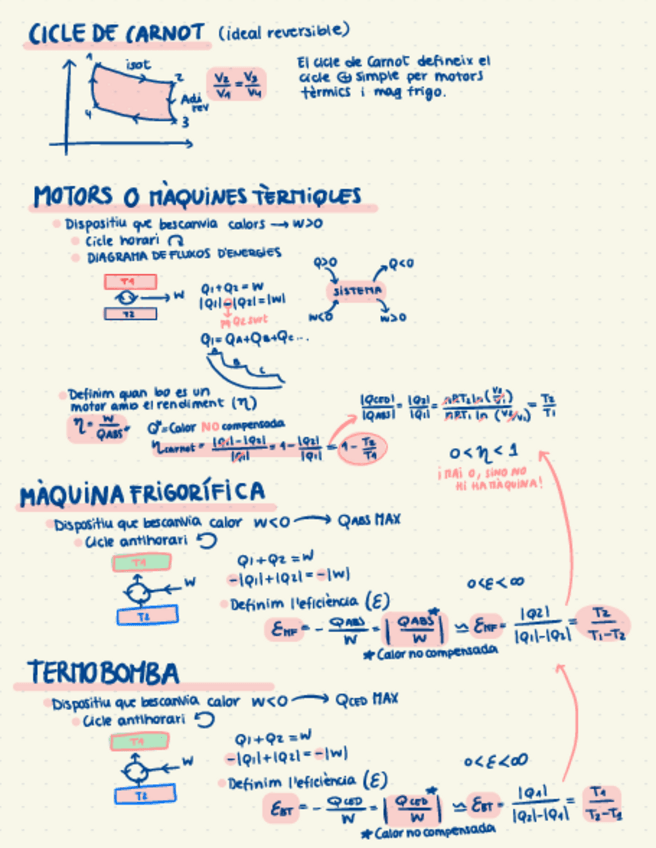 CICLE DE CARNOT (ideal reversible)
1 isot 2
Adi rev
4 3
V2/V1 = V3/V4
El cicle de Carnot defineix el
cicle ⊕ simple per motors
tèrmics i maq frigo.
MOTORS O MÀQUINES TÈRMIQUES
Dispositiu que bescanvia calors → W>0
Cicle horari ↻
DIAGRAMA DE FLUXOS D'ENERGIES
T1
W
T2
Q1+Q2 = W
|Q1|-|Q2|=|W|
Q1= QA+QB+QC...
A B C
Q>0 Q<0
SISTEMA
W<0 W>0
Definim quan bo es un
motor amb el rendiment (η)
η = W/QABS*
Q*=Calor NO compensada
ηcarnot = |Q1|-|Q2|/|Q1| = 1 - |Q2|/|Q1| = 1 - T2/T1
|QCED|/|QABS| = |Q2|/|Q1| = nRT2 ln(V3/V4)/nRT1 ln(V2/V1) = T2/T1
0<η<1
¡MAI 0, SINO NO
HI HA MÀQUINA!
MÀQUINA FRIGORÍFICA
Dispositiu que bescanvia calor W<0 → QABS MAX
Cicle antihorari ↺
T1
W
T2
Q1+Q2 = W
-|Q1|+|Q2| = -|W|
Definim l'eficiència (ε)
0<ε<∞
εMF = - QABS/W = |QABS*/W| ≌ εMF = |Q2|/|Q1|-|Q2| = T2/T1-T2
* Calor no compensada
TERMOBOMBA
Dispositiu que bescanvia calor W<0 → QCED MAX
Cicle antihorari ↺
T1
W
T2
Q1+Q2 = W
-|Q1|+|Q2| = -|W|
Definim l'eficiència (ε)
0<ε<∞
εBT = - QCED/W = |QCED*/W| ≌ εBT = |Q1|/|Q2|-|Q1| = T1/T2-T1
* Calor no compensada